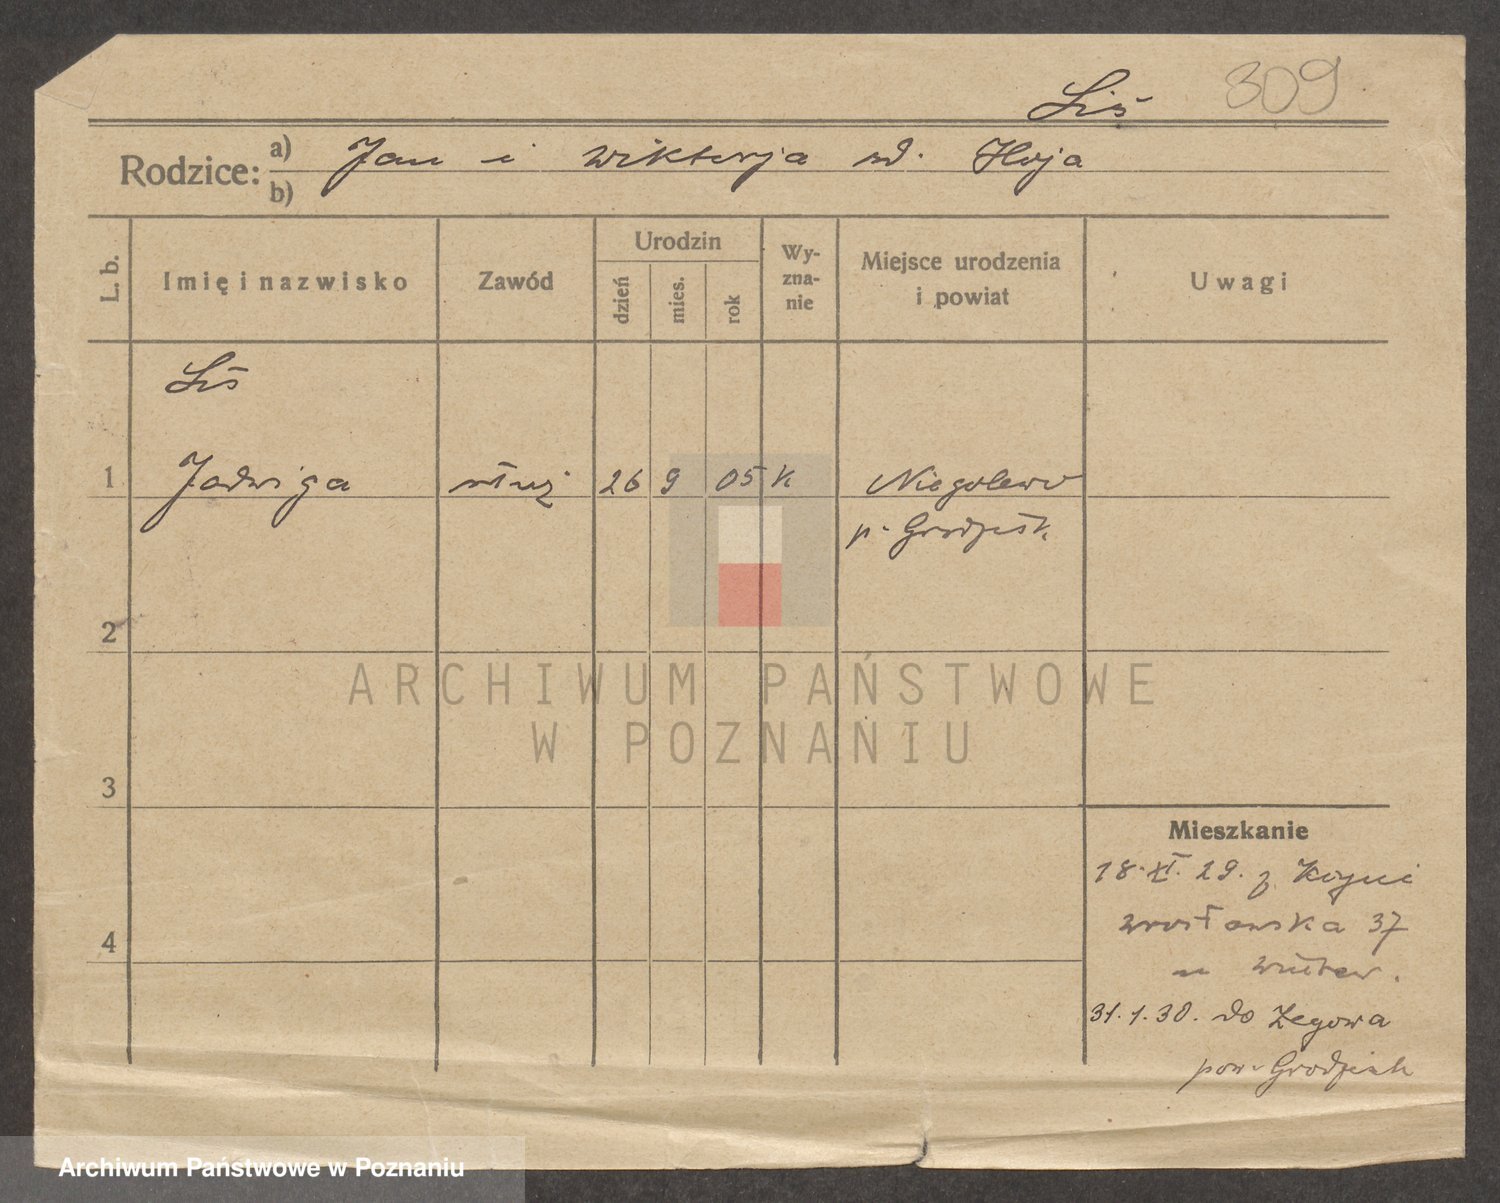 Liś 309
Rodzice: a) Jan i Wiktorja
b)
L. b.
Imię i nazwisko
Zawód
Urodzin
dzień
mies.
rok
Wy-
zna-
nie
Miejsce urodzenia
i powiat
Uwagi
Liś
1 Jadwiga służ 26 9 05 K Niegolewo
p. Grodzisk.
2
3
4
ARCHIWUM PAŃSTWOWE
W POZNANIU
Mieszkanie
18.XI.29. z
Wrocławska 37
u
31.1.30. do Zegowa
pow. Grodzisk
Archiwum Państwowe w Poznaniu